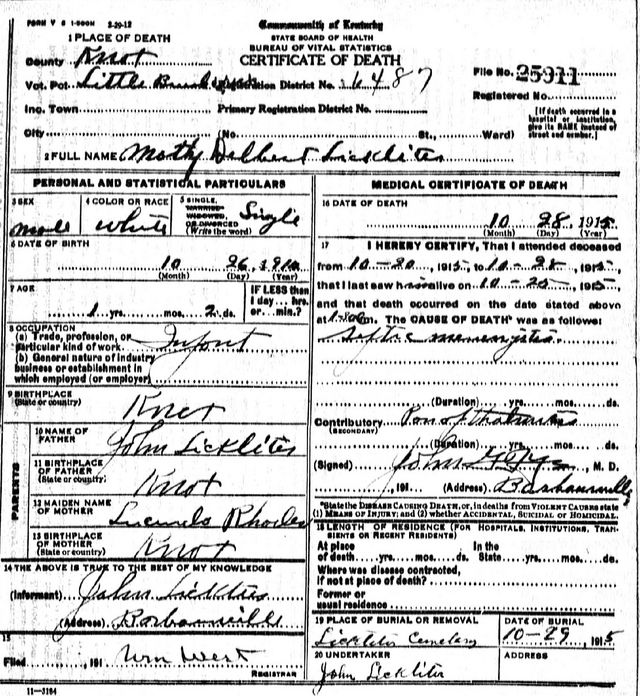 FORM V S 1-500M 2-29-12
Commonwealth of Kentucky
STATE BOARD OF HEALTH
BUREAU OF VITAL STATISTICS
CERTIFICATE OF DEATH
1 PLACE OF DEATH
County Knox
Vot. Pct. Little Registration District No. 6487
File No. 25911
Registered No.
Inc. Town Primary Registration District No.
[If death occurred in a hospital or institution, give its NAME instead of street and number.]
City (No St., Ward)
2 FULL NAME Delbert Lickliter
PERSONAL AND STATISTICAL PARTICULARS
3 SEX
Male
4 COLOR OR RACE
White
5 SINGLE, MARRIED WIDOWED, OR DIVORCED
(Write the word)
Single
6 DATE OF BIRTH
10 26
(Month) (Day) (Year)
7 AGE
1 yrs. mos. 2 ds.
IF LESS than
1 day... hrs.
or... min.?
8 OCCUPATION
(a) Trade, profession, or
particular kind of work Infant
(b) General nature of industry
business or establishment in
which employed (or employer)
9 BIRTHPLACE
(State or country)
Knox
PARENTS
10 NAME OF
FATHER
John Lickliter
11 BIRTHPLACE
OF FATHER
(State or country)
Knox
12 MAIDEN NAME
OF MOTHER
Rhodes
13 BIRTHPLACE
OF MOTHER
(State or country)
Knox
14 THE ABOVE IS TRUE TO THE BEST OF MY KNOWLEDGE
(Informant) John Lickliter
(Address) Barbourville
15
Filed , 191 Wm West
REGISTRAR
11-3184
MEDICAL CERTIFICATE OF DEATH
16 DATE OF DEATH
10 28 1915
(Month) (Day) (Year)
17 I HEREBY CERTIFY, That I attended deceased
from 10-20, 1915, to 10-28, 1915,
that I last saw h alive on 10-25, 1915
and that death occurred on the date stated above
at m. The CAUSE OF DEATH* was as follows:
(Duration) yrs. mos. ds.
Contributory
(SECONDARY)
(Duration) yrs. mos. ds.
(Signed) John , M. D.
, 191 (Address) Barbourville
*State the DISEASE CAUSING DEATH, or, in deaths from VIOLENT CAUSES state
(1) MEANS OF INJURY; and (2) whether ACCIDENTAL, SUICIDAL or HOMICIDAL.
18 LENGTH OF RESIDENCE (FOR HOSPITALS, INSTITUTIONS, TRANSIENTS OR RECENT RESIDENTS)
At place In the
of death yrs. mos. ds. State yrs. mos. ds.
Where was disease contracted,
if not at place of death?
Former or
usual residence
19 PLACE OF BURIAL OR REMOVAL
Lickliter Cemetery
DATE OF BURIAL
10-29 1915
20 UNDERTAKER
John Lickliter
ADDRESS